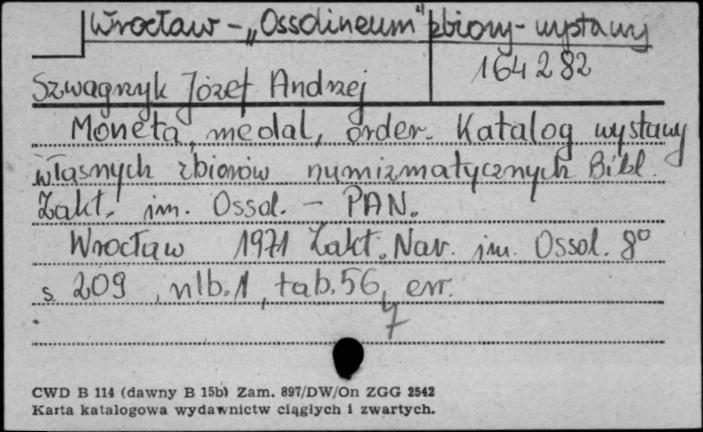 Wrocław - „Ossolineum" zbiory - wystawy
164282
Szwagrzyk Józef Andrzej
Moneta, medal, order. Katalog wystawy
własnych zbiorów numizmatycznych Bibl.
Zakt. im. Ossol. - PAN.
Wrocław 1971 Zakt. Nar. im. Ossol. 8°
s. 209, nlb. 1, tab. 56, err.
7
CWD B 114 (dawny B 15b) Zam. 897/DW/On ZGG 2542
Karta katalogowa wydawnictw ciągłych i zwartych.